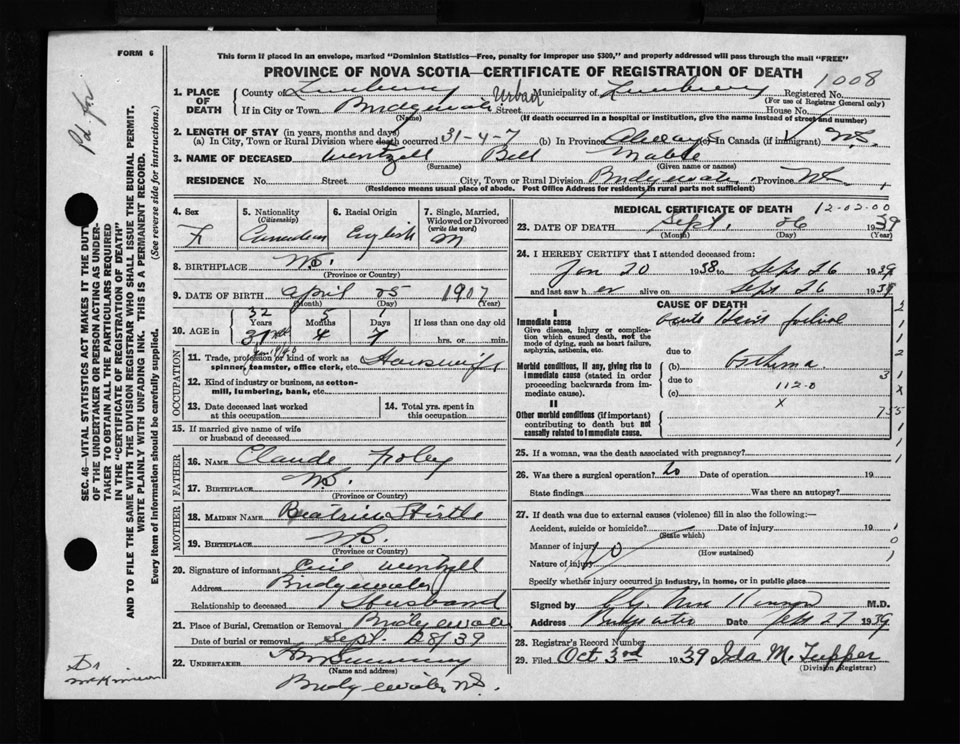 FORM 6
This form if placed in an envelope, marked "Dominion Statistics—Free, penalty for improper use $300," and properly addressed will pass through the mail "FREE"
PROVINCE OF NOVA SCOTIA—CERTIFICATE OF REGISTRATION OF DEATH
Pd. for
SEC. 46—VITAL STATISTICS ACT MAKES IT THE DUTY
OF THE UNDERTAKER OR PERSON ACTING AS UNDER-
TAKER TO OBTAIN ALL THE PARTICULARS REQUIRED
IN THE "CERTIFICATE OF REGISTRATION OF DEATH"
AND TO FILE THE SAME WITH THE DIVISION REGISTRAR WHO SHALL ISSUE THE BURIAL PERMIT.
WRITE PLAINLY WITH UNFADING INK. THIS IS A PERMANENT RECORD.
Every item of information should be carefully supplied. (See reverse side for instructions.)
1. PLACE OF DEATH
County of Lunenburg Urban Municipality of Lunenburg Registered No. 1008
(For use of Registrar General only)
If in City or Town Bridgewater Street House No.
(Name) (If death occurred in a hospital or institution, give the name instead of street and number)
2. LENGTH OF STAY (in years, months and days)
(a) In City, Town or Rural Division where death occurred 31-4-7 (b) In Province Always (c) In Canada (if immigrant) N.S.
3. NAME OF DECEASED Wentzell Bell Mable
(Surname) (Given name or names)
RESIDENCE No. Street City, Town or Rural Division Bridgewater Province NS
(Residence means usual place of abode. Post Office Address for residents in rural parts not sufficient)
4. Sex F
5. Nationality (Citizenship) Canadian
6. Racial Origin English
7. Single, Married, Widowed or Divorced (write the word) M
8. BIRTHPLACE N.S.
(Province or Country)
9. DATE OF BIRTH April 25 1907
(Month) (Day) (Year)
10. AGE in 32 Years 5 Months 1 Days If less than one day old
4 7 hrs. or min.
OCCUPATION
11. Trade, profession or kind of work as spinner, teamster, office clerk, etc. Housewife
12. Kind of industry or business, as cotton-mill, lumbering, bank, etc.
13. Date deceased last worked at this occupation
14. Total yrs. spent in this occupation
15. If married give name of wife or husband of deceased
FATHER
16. Name Claude Foley
17. Birthplace N.S.
(Province or Country)
MOTHER
18. Maiden Name Beatrice Hirtle
19. Birthplace N.S.
(Province or Country)
20. Signature of informant Wentzell
Address Bridgewater
Relationship to deceased Husband
21. Place of Burial, Cremation or Removal Bridgewater
Date of burial or removal Sept. 28/39
22. Undertaker
(Name and address)
Bridgewater N.S.
Dr
MEDICAL CERTIFICATE OF DEATH 12-02-00
23. DATE OF DEATH Sept. 26 1939
(Month) (Day) (Year)
24. I HEREBY CERTIFY that I attended deceased from:
Jan 20 1938 to Sept 26 1939
and last saw her alive on Sept 26 1939
CAUSE OF DEATH
I
Immediate cause
Give disease, injury or complication which caused death, not the mode of dying, such as heart failure, asphyxia, asthenia, etc.
Acute Heart failure
Morbid conditions, if any, giving rise to immediate cause (stated in order proceeding backwards from immediate cause).
due to
(b) Asthma
due to
(c) 112-0
X
II
Other morbid conditions (if important) contributing to death but not causally related to immediate cause.
25. If a woman, was the death associated with pregnancy?
26. Was there a surgical operation? No Date of operation 19
State findings Was there an autopsy?
27. If death was due to external causes (violence) fill in also the following:—
Accident, suicide or homicide? Date of injury 19
(State which)
Manner of injury
(How sustained)
Nature of injury No
Specify whether injury occurred in industry, in home, or in public place
Signed by M.D.
Address Bridgewater Date Sept 27 1939
28. Registrar's Record Number
29. Filed Oct 3rd 1939 Ida M. Tupper
(Division Registrar)